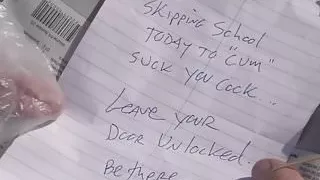 Skipping School
TODAY TO "CUM"
SUCK YOU COCK...
LEAVE YOUR
DOOR UNLOCKED.
Be there